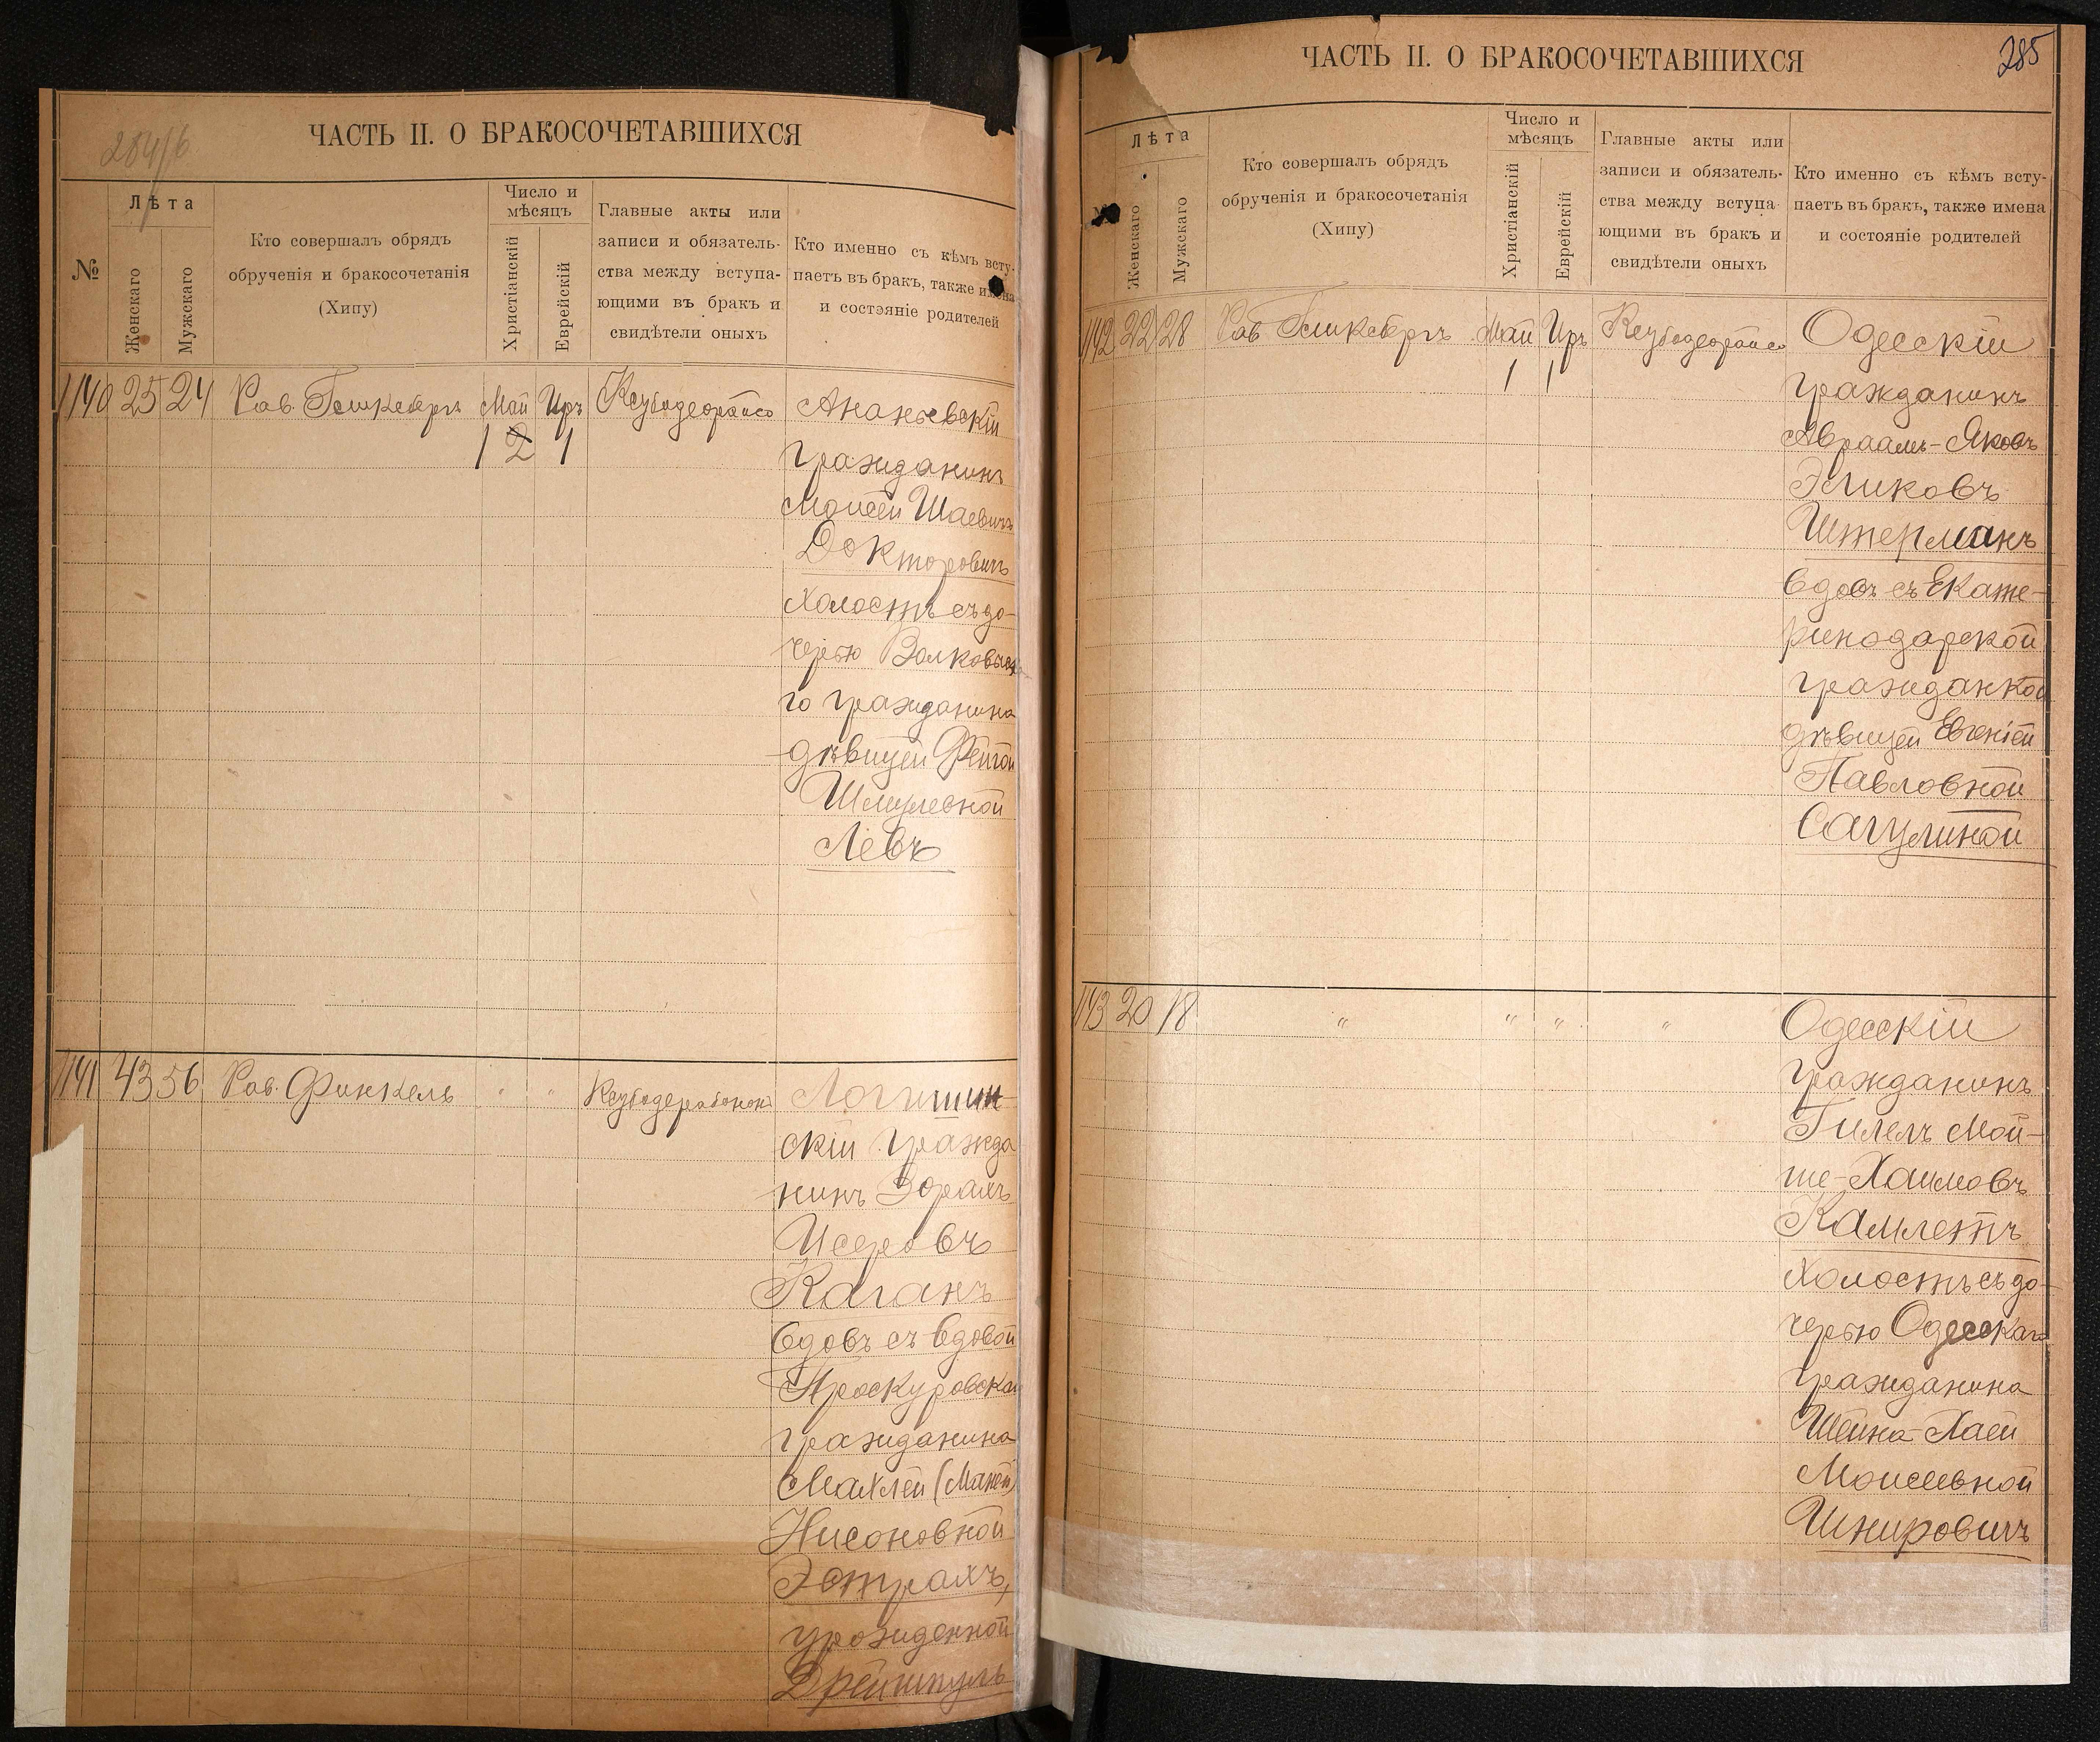 284/6
ЧАСТЬ II. О БРАКОСОЧЕТАВШИХСЯ
№
Лѣта
Женскаго
Мужскаго
Кто совершалъ обрядъ
обрученія и бракосочетанія
(Хипу)
Число и
мѣсяцъ
Христіанскій
Еврейскій
Главные акты или
записи и обязатель-
ства между вступа-
ющими въ бракъ и
свидѣтели оныхъ
Кто именно съ кѣмъ всту-
паетъ въ бракъ, также имена
и состояніе родителей
1140 25 24 Рав. Май Иръ Ананьевскій
1 2 1
гражданинъ
Моисей Шаевичъ
Докторовичъ
холостъ съ до-
черью Волковыска
го гражданина
дѣвицей Фейгой
Шмулевной
Левъ
1141 43 56 Рав. Финкель " " Логишин
скій гражда
нинъ Зорахъ
Исеровъ
Каганъ
вдовъ съ вдовой
Проскуровска
гражданина
Махлей (Маней)
Нисоновной
Эстрахъ,
урожденной
Дрейшпуль
285
ЧАСТЬ II. О БРАКОСОЧЕТАВШИХСЯ
Лѣта
Женскаго
Мужскаго
Кто совершалъ обрядъ
обрученія и бракосочетанія
(Хипу)
Число и
мѣсяцъ
Христіанскій
Еврейскій
Главные акты или
записи и обязатель-
ства между вступа
ющими въ бракъ и
свидѣтели оныхъ
Кто именно съ кѣмъ всту-
паетъ въ бракъ, также имена
и состояніе родителей
1142 22 28 Рав Май Иръ Одесскій
1 1
гражданинъ
Авраамъ-Яковъ
Эликовъ
Штерманъ
вдовъ съ Екате-
ринодарской
гражданкой
дѣвицей Евгеніей
Павловной
Сагулиной
1143 20 18 " " " " Одесскій
гражданинъ
Гилель Мой-
ше-Хаимовъ
Камлетъ
холостъ съ до-
черью Одесскаго
гражданина
Шейна-Хаей
Моисеевной
Шнировичъ